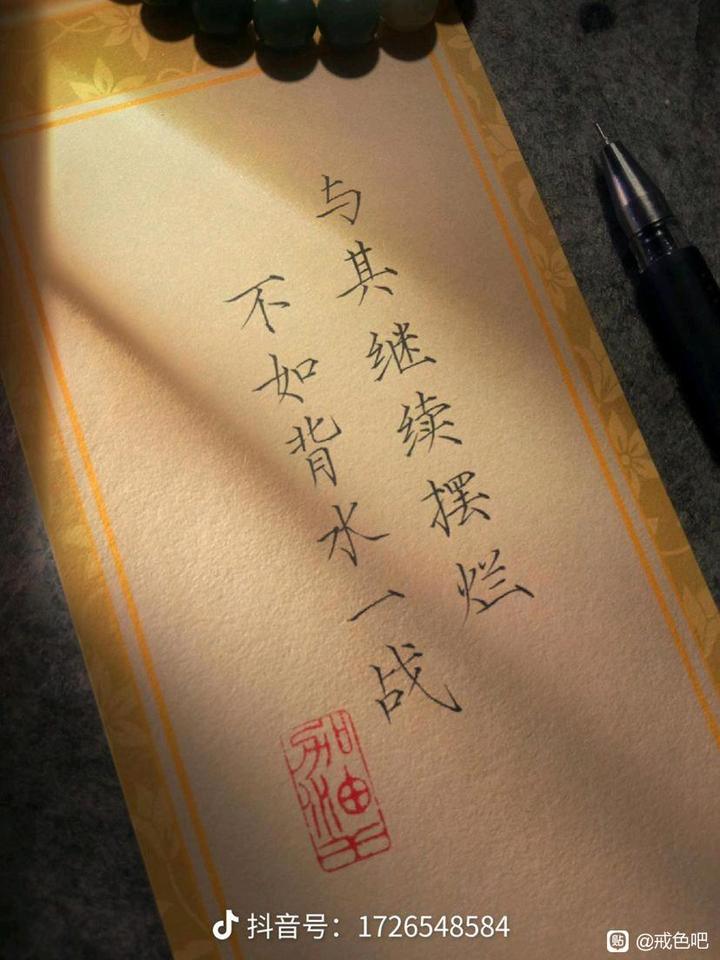 与其继续摆烂
不如背水一战
加油
抖音号：1726548584
贴 @戒色吧